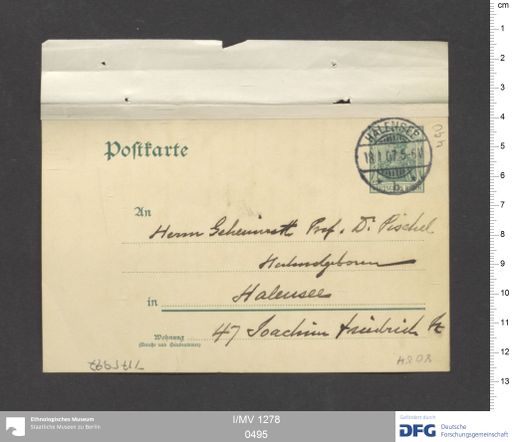 Postkarte
HALENSEE
18.1.07.5-6N
An
Herrn Geheimrath Prof. Dr. Pischel
Hochwohlgeboren
in
Halensee
Wohnung
(Straße und Hausnummer)
47 Joachim Friedrich St
cm
1
2
3
4
5
6
7
8
9
10
11
12
13
Ethnologisches Museum
Staatliche Museen zu Berlin
I/MV 1278
0495
Gefördert durch
DFG
Deutsche
Forschungsgemeinschaft